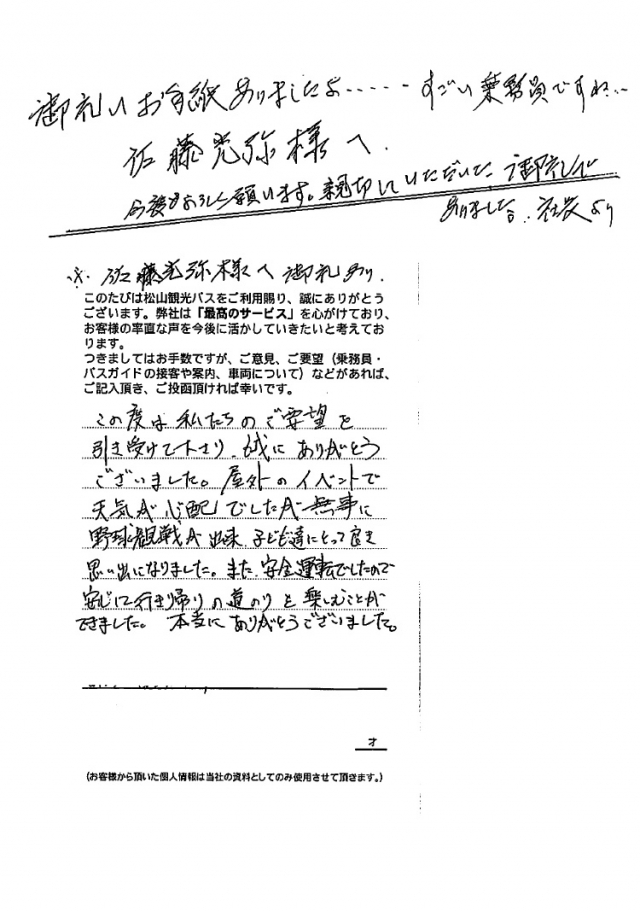 御礼いお手紙ありましたよ・・・・・すごい乗務員ですね・・
佐藤光弥様へ
今後もよろしく願います。親切していただいた、御礼が
ありました。社長より
※. 佐藤光弥様へ 御礼あり.
このたびは松山観光バスをご利用賜り、誠にありがとう
ございます。弊社は「最高のサービス」を心がけており、
お客様の率直な声を今後に活かしていきたいと考えてお
ります。
つきましてはお手数ですが、ご意見、ご要望（乗務員・
バスガイドの接客や案内、車両について）などがあれば、
ご記入頂き、ご投函頂ければ幸いです。
この度は私たちのご要望を
引き受けて下さり、誠にありがとう
ございました。屋外のイベントで
天気が心配でしたが無事に
野球観戦が出来、子ども達にとって良き
思い出になりました。また、安全運転でしたので
安心して行き帰りの道のりを楽しむことが
できました。本当にありがとうございました。
才
（お客様から頂いた個人情報は当社の資料としてのみ使用させて頂きます。）